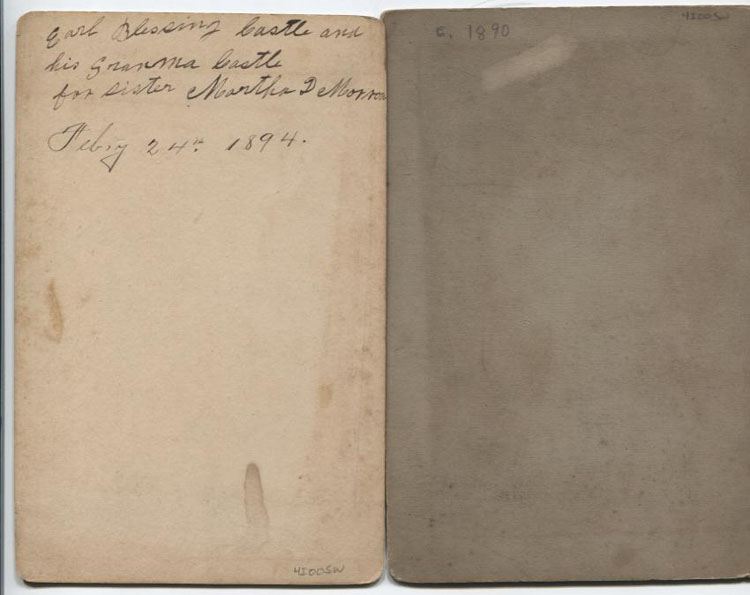 Earl Blessing Castle and
his Granma Castle
for sister Martha D Morrow
Febry 24th 1894.
4500SW
c. 1890
4500SW